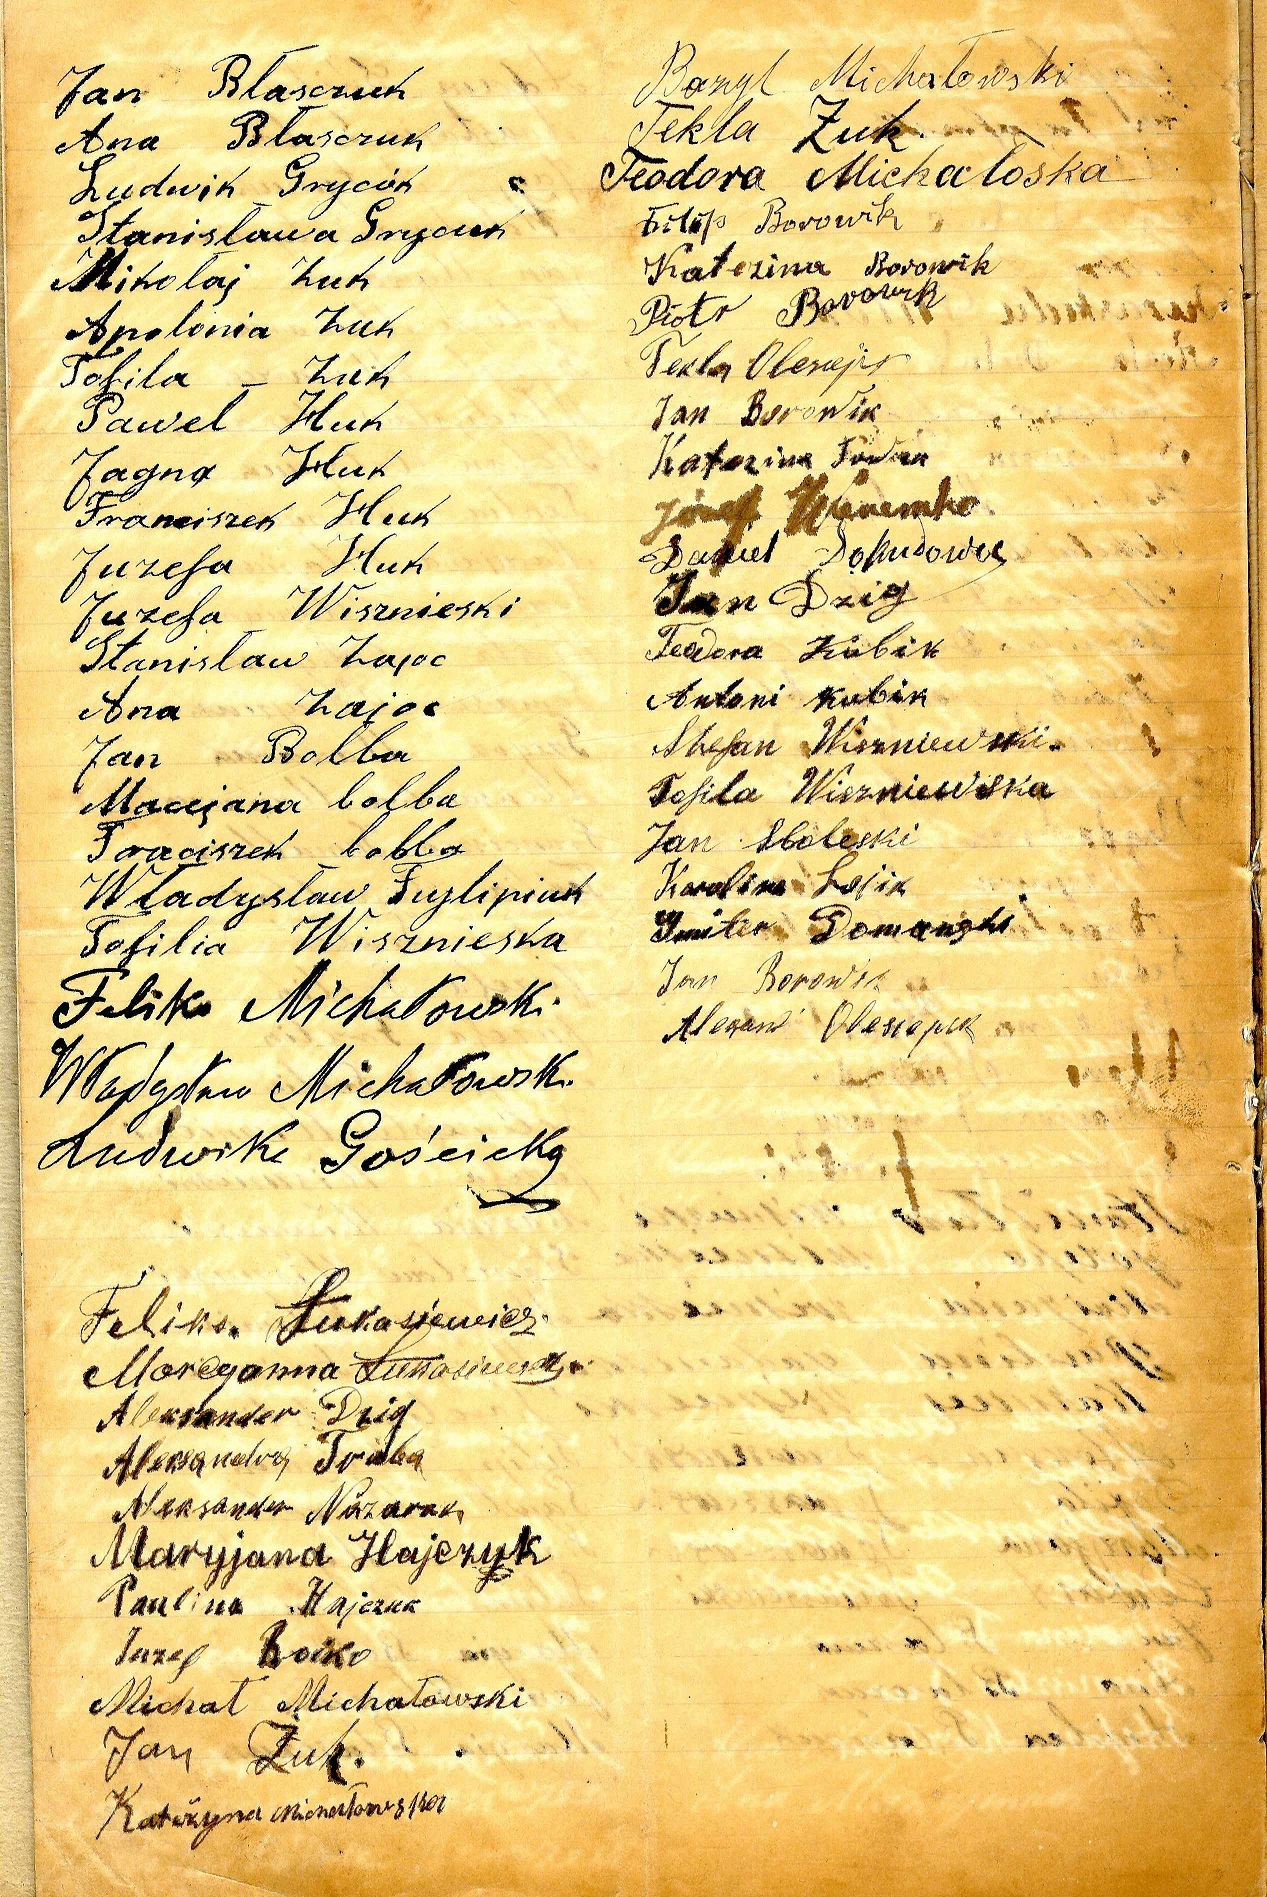 Jan Błasczuk
Ana Błasczuk
Ludwik Grycúk
Stanisława Grycuk
Mikołaj Żuk
Apolonia Żuk
Tofila Żuk
Pawel Huk
Jagna Huk
Franciszek Huk
Juzefa Huk
Juzefa Wisznieski
Stanislaw Zajoc
Ana Zajoc
Jan Bolba
Macejana bolba
Fraciszek bolba
Władysław Fuylipiuk
Tofilia Wisznieska
Feliks Michałowski
Władysław Michałowski
Ludwika Gościcka
Feliks Łukasiewicz
Morcyanna Łukasiewicz
Aleksander Dzig
Aleksandra Traba
Aleksander Nazaruk
Maryjana Hajczuk
Paulina Hajczuk
Iuzef Boiko
Michał Michałowski
Jan Żuk.
Katarzyna Michałowska
Bazyl Michałowski
Tekla Żuk
Teodora Michałoska
Filip Borowik
Katezina Borowik
Piotr Borowik
Tekla Olesiejs
Jan Borowik
Katezina
Józef
Daniel
Jan Dzig
Teodora Kubik
Antoni Kubik
Stefan Wiszniewski.
Tofila Wiszniewska
Jan Sboleski
Karolina
Domanski
Jan Borowik
Olesiejuk